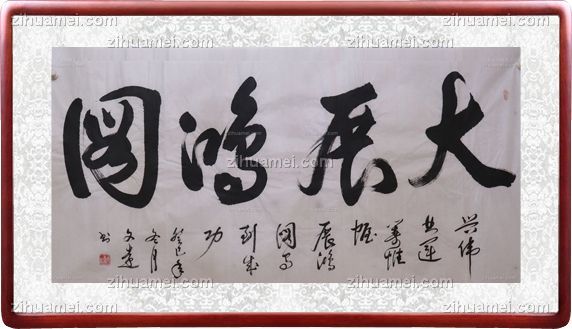 zihuamei.com zihuamei.com zihuamei.com
大展鸿图
zihuamei.com zihuamei.com zihuamei.com
兴伟
业运
筹帷
幄
展鸿
图马
到成
功
癸巳年
冬月
文
书
zihuamei.com zihuamei.com zihuamei.com